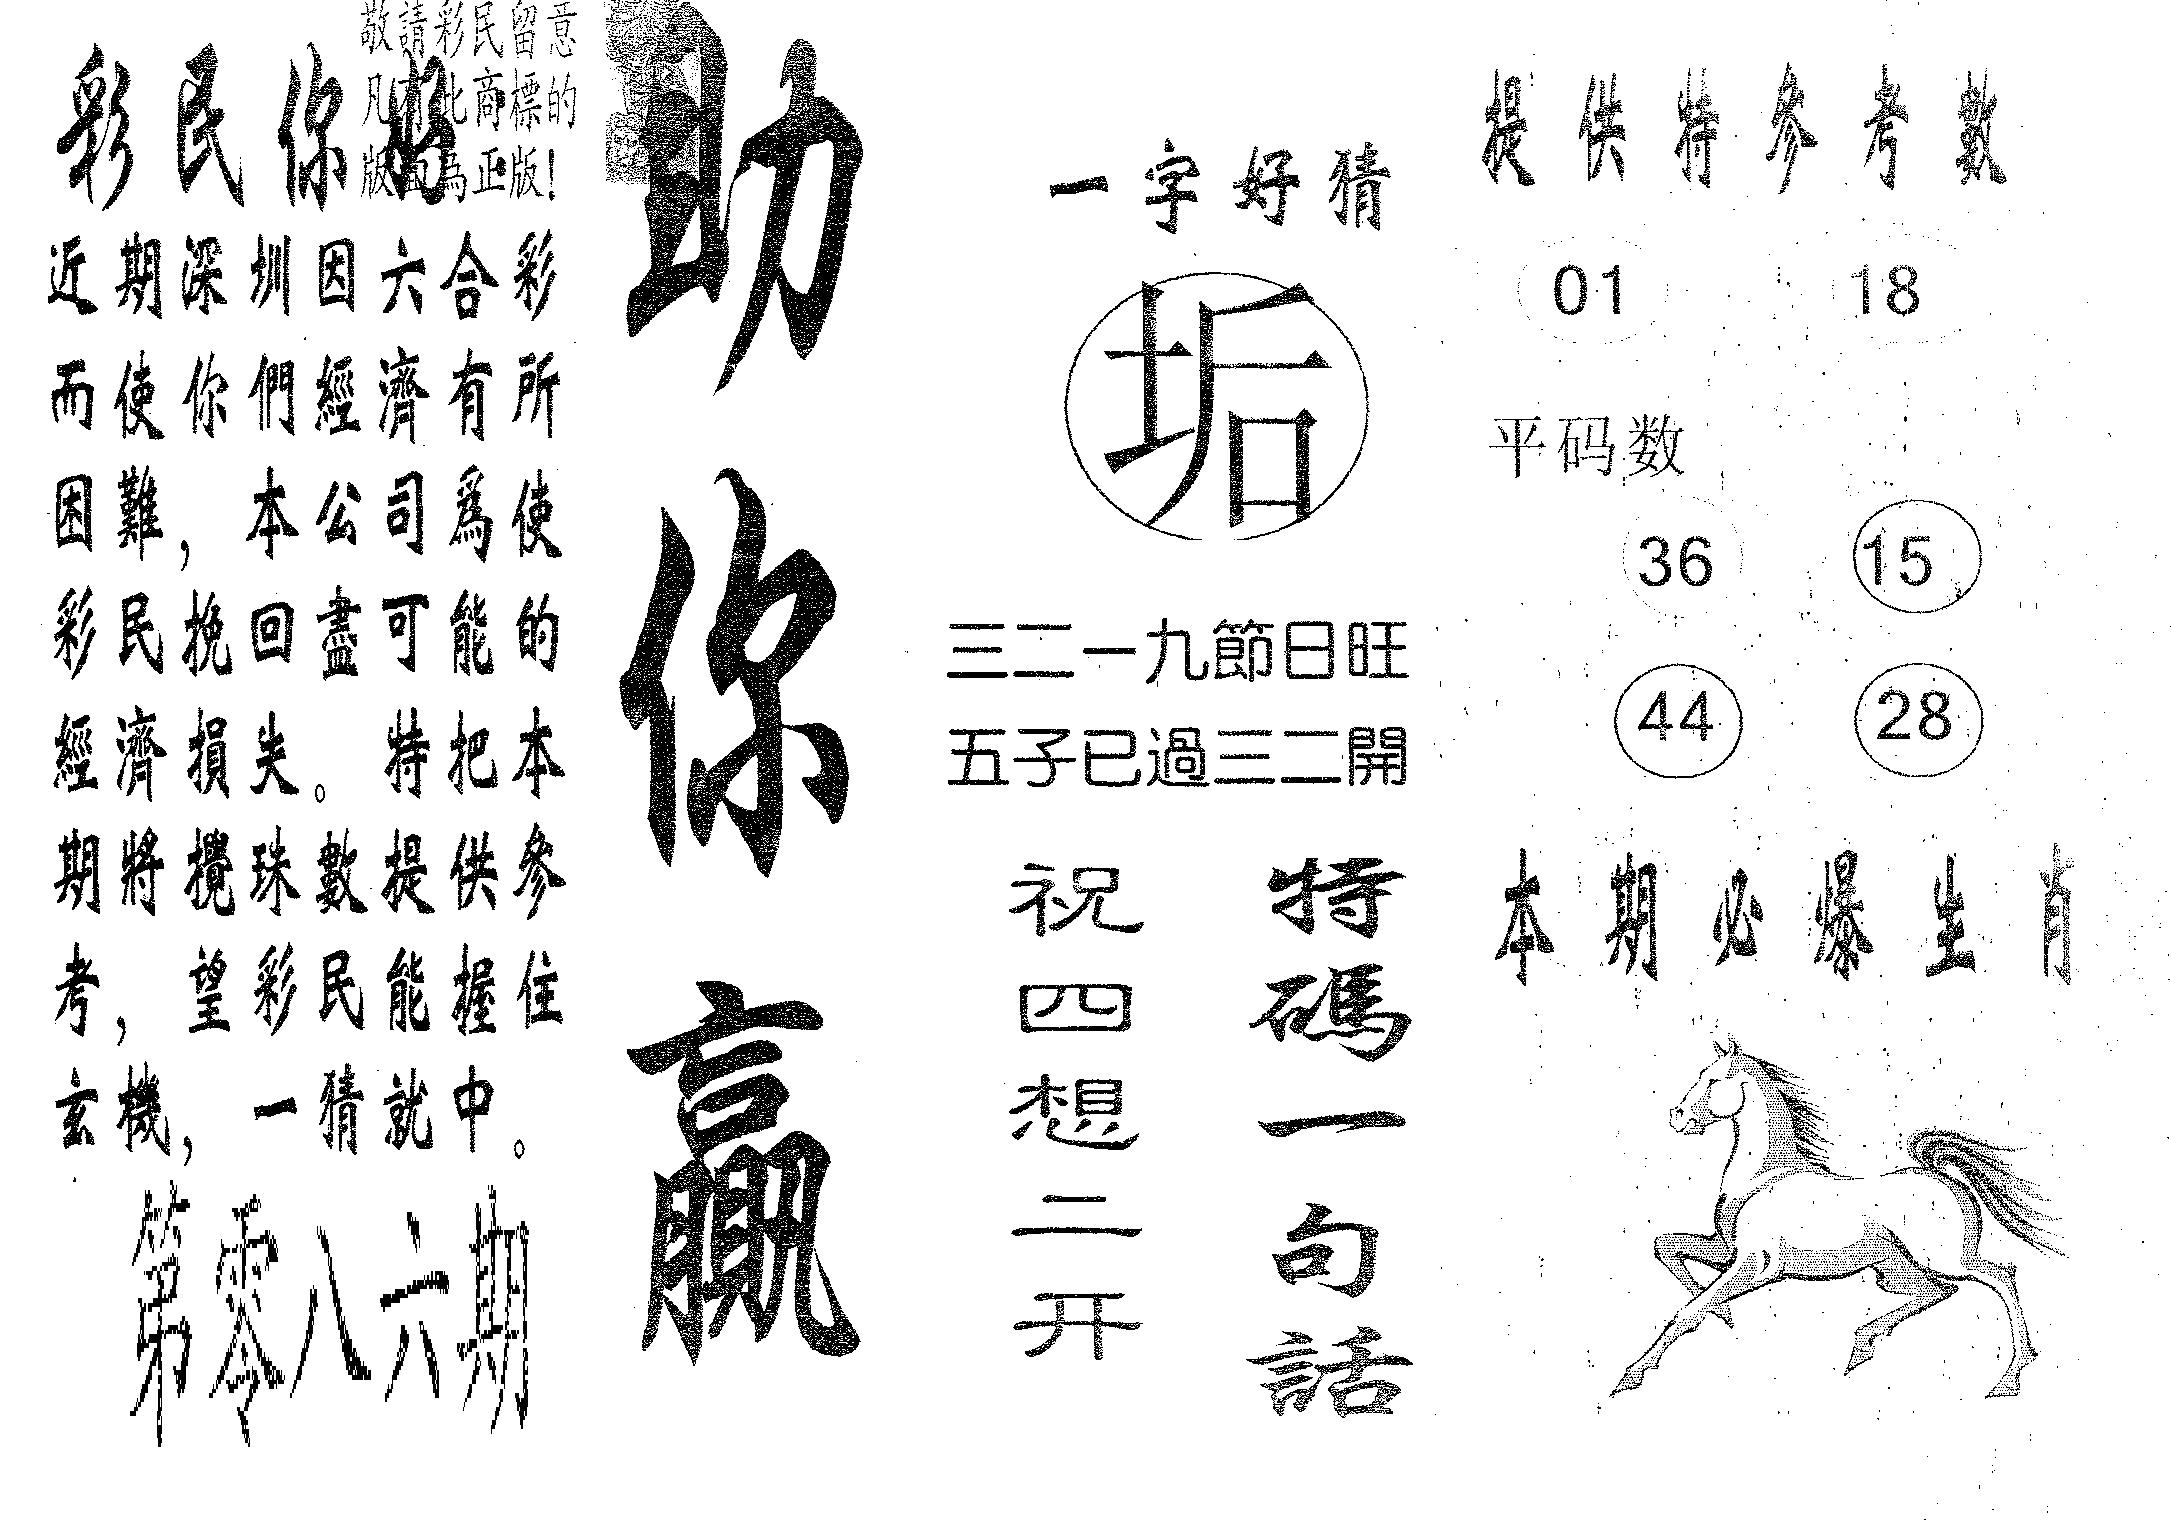 敬請彩民留意
凡有此商標的
版面為正版!
彩民你好
近期深圳因六合彩
而使你們經濟有所
困難，本公司爲使
彩民挽回盡可能的
經濟損失。特把本
期將攪珠數提供參
考，望彩民能握住
玄機，一猜就中。
第零八六期
助你贏
一字好猜
垢
三二一九節日旺
五子已過三二開
特碼一句話
祝四想二开
提供特參考數
01 18
平码数
36 15
44 28
本期必爆生肖